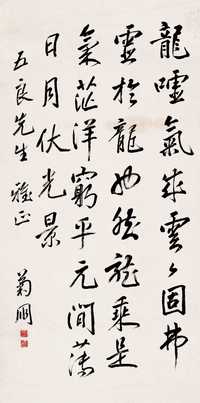 龍噓氣成雲雲固弗
靈於龍也然龍乘是
氣茫洋窮乎玄間薄
日月伏光景
五良先生雅正
菊朋